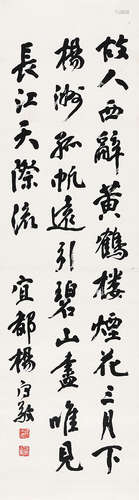 故人西辭黃鶴樓煙花三月下
楊洲孤帆遠引碧山盡唯見
長江天際流
宜都楊守敬